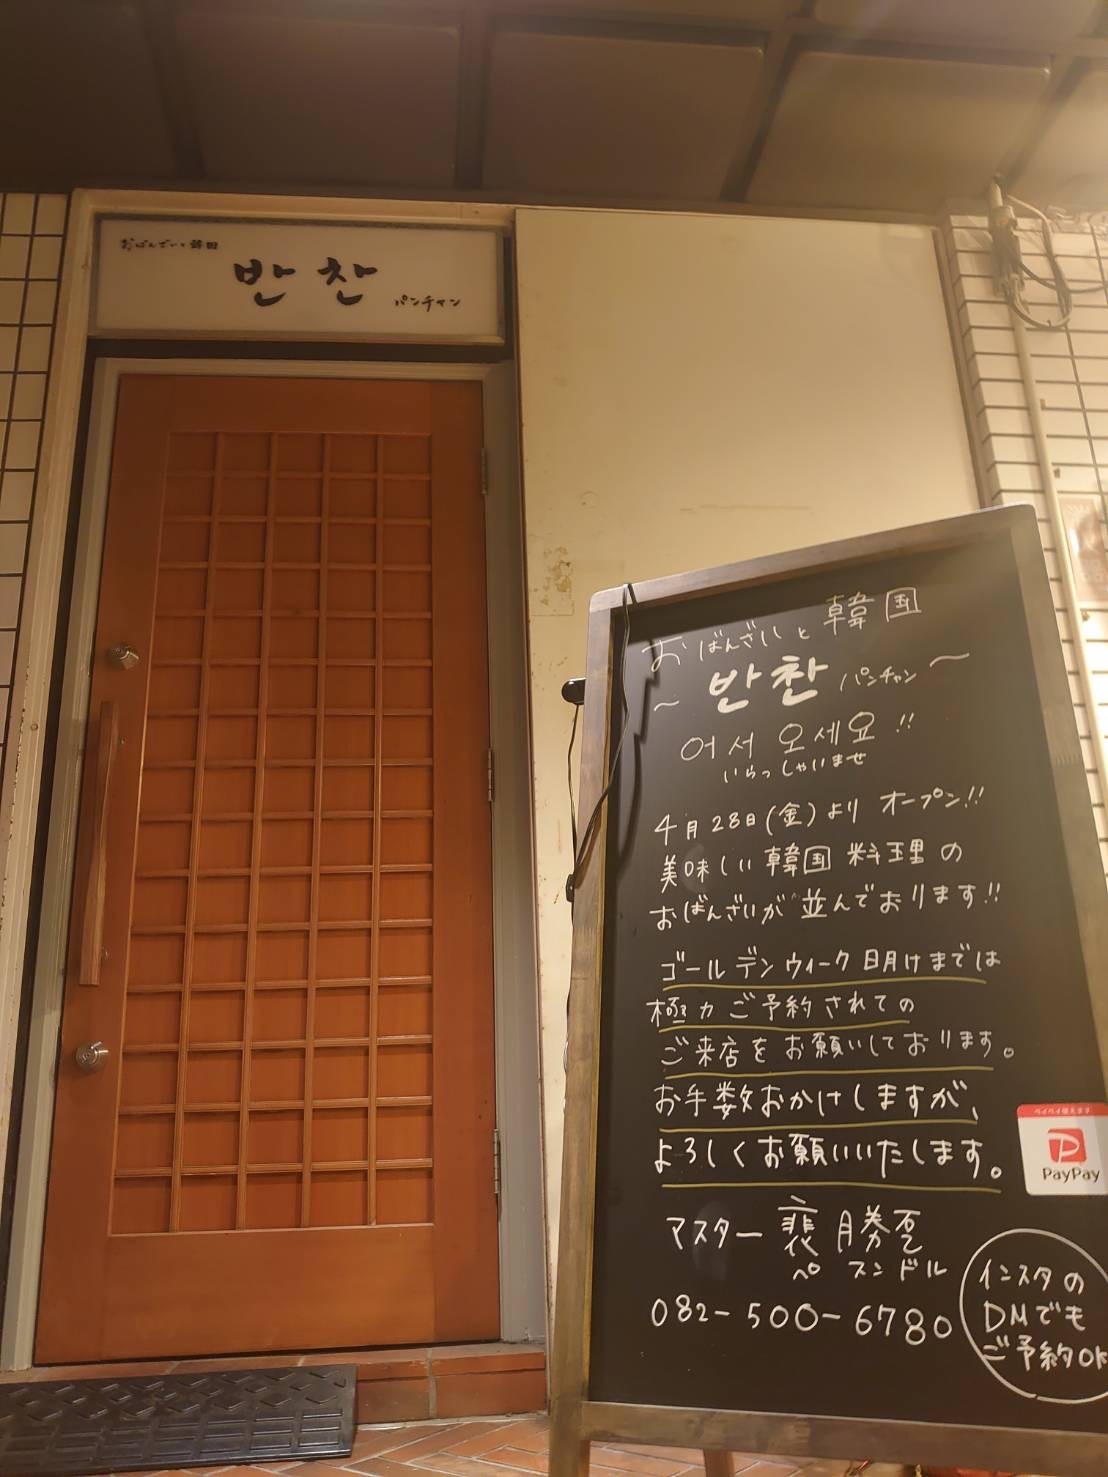 おばんざいと韓国
반찬 パンチャン
おばんざいと韓国
～ 반찬 パンチャン ～
어서 오세요!!
いらっしゃいませ
4月28日(金)より オープン!!
美味しい韓国料理の
おばんざいが並んでおります!!
ゴールデンウィーク明けまでは
極力ご予約されての
ご来店をお願いしております。
お手数おかけしますが、
よろしくお願いいたします。
マスター 裵 勝乭
ペ スンドル
082-500-6780
インスタの
DMでも
ご予約OK
ペイペイ使えます
PayPay